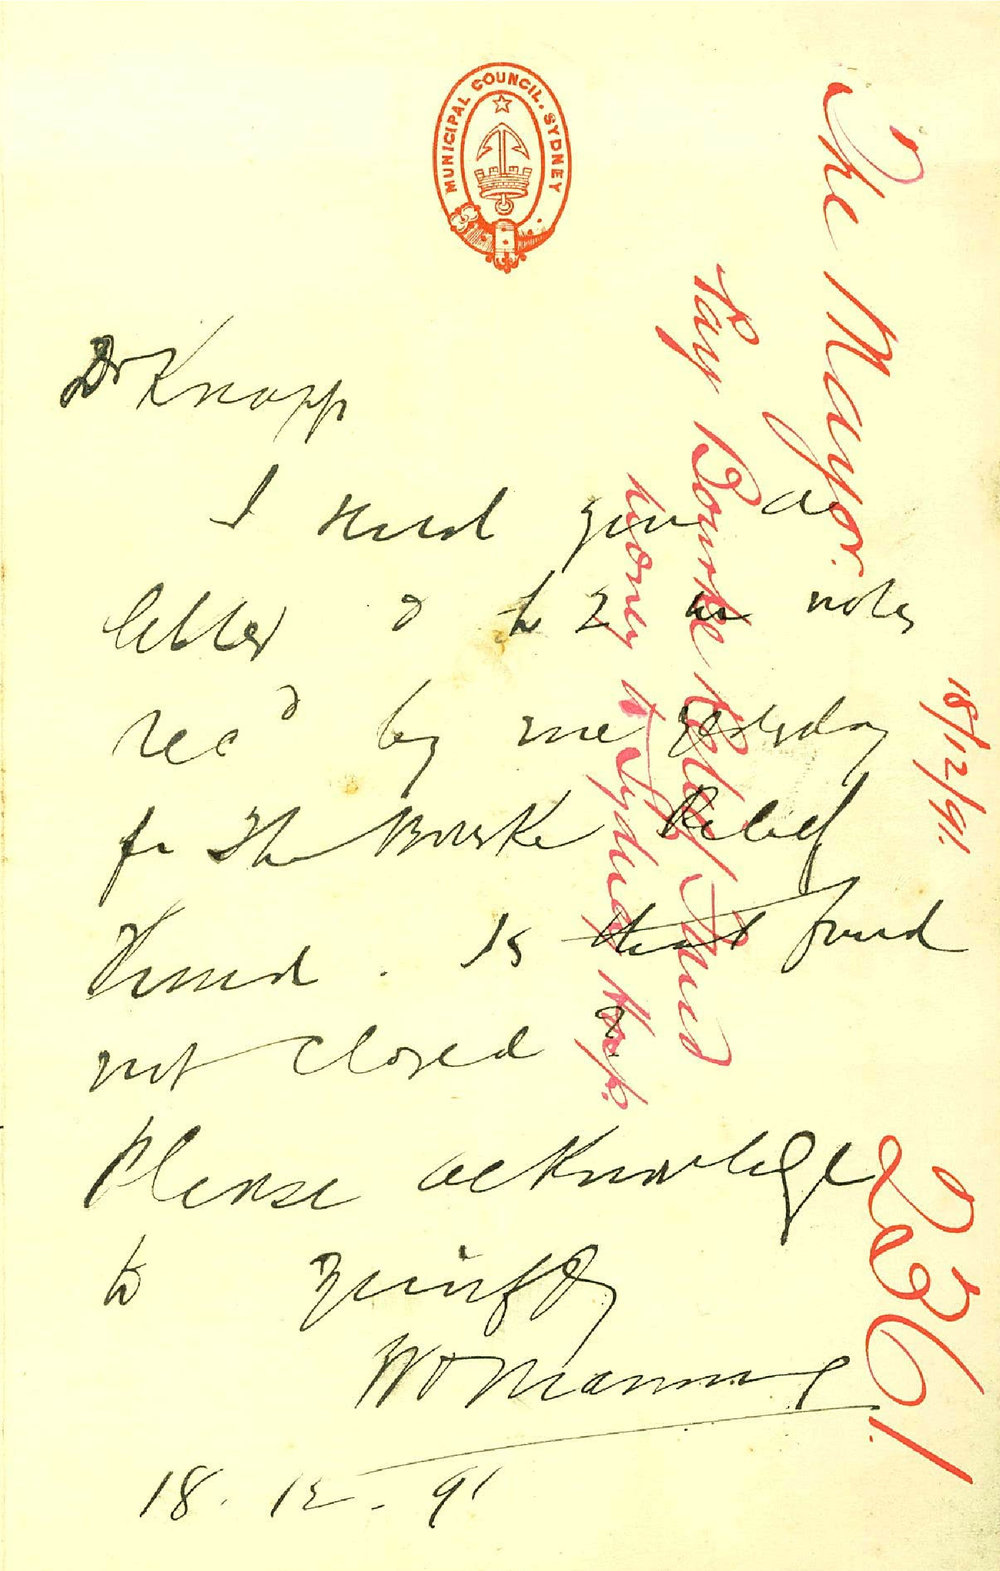 MUNICIPAL COUNCIL. SYDNEY
Dr Knapp
I send you a
letter & £2 in notes
rec'd by me yesterday
for the Bourke Relief
Fund. Is that fund
not closed?
Please acknowledge
to
W P Manning
18.12.91
The Mayor.
Pay Bourke Relief Fund
money to Sydney Hosp.
18/12/91.
2361.